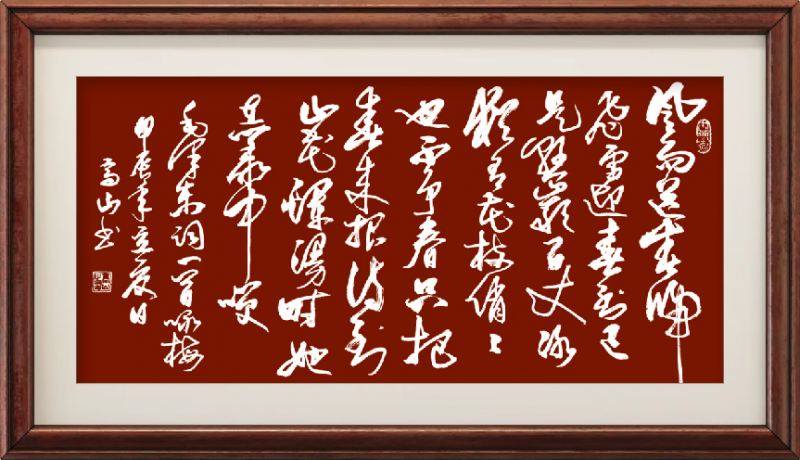 风雨送春归
飞雪迎春到已
是悬崖百丈冰
犹有花枝俏〻
也不争春只把
春来报待到
山花烂漫时她
在丛中笑
毛泽东词一首咏梅
甲辰年立夏日
高山书